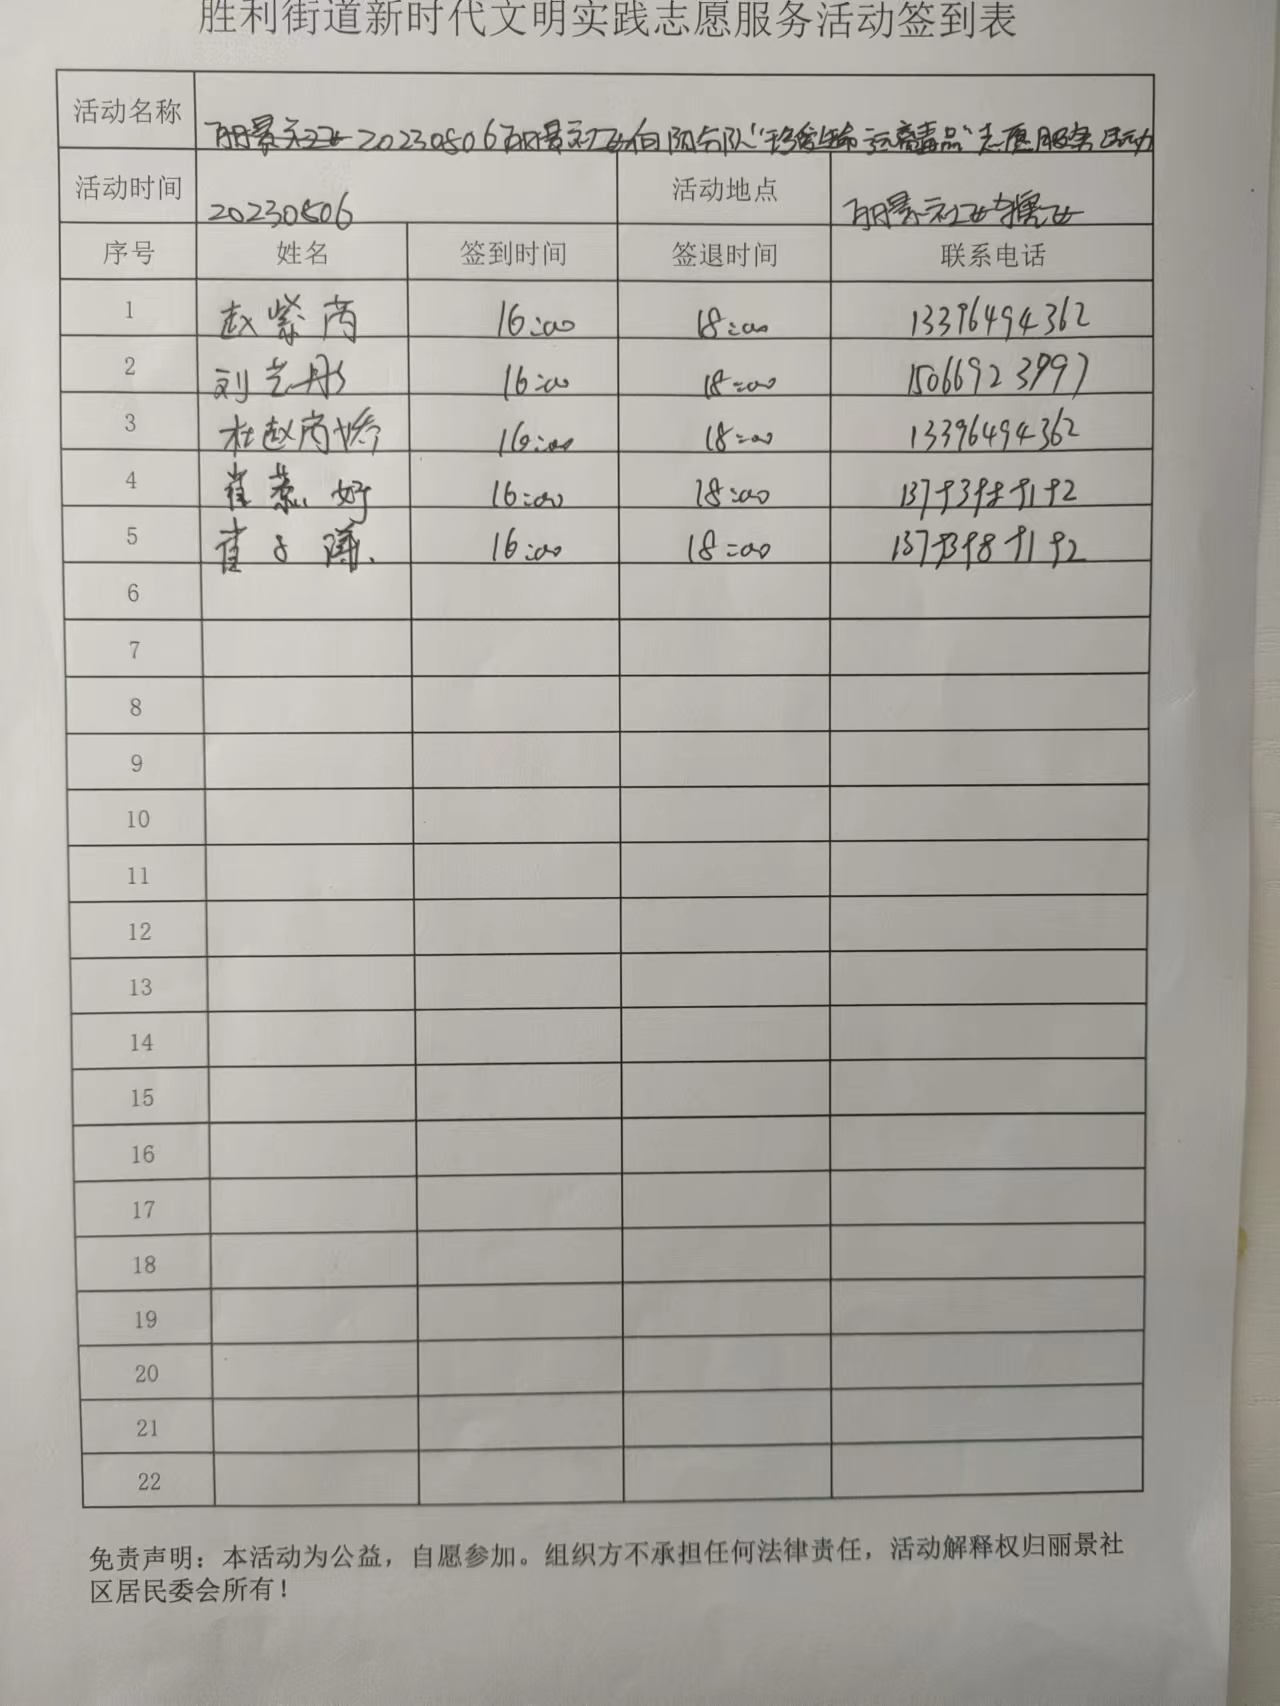 胜利街道新时代文明实践志愿服务活动签到表
活动名称 丽景社区20230506丽景社区向阳分队“珍爱生命 远离毒品”志愿服务活动
活动时间 20230506 活动地点 丽景社区辖区
序号 姓名 签到时间 签退时间 联系电话
1 赵紫芮 16:00 18:00 13396494362
2 刘艺彤 16:00 18:00 15066923997
3 杜赵芮娇 16:00 18:00 13396494362
4 崔慕好 16:00 18:00
5 崔子 16:00 18:00
6
7
8
9
10
11
12
13
14
15
16
17
18
19
20
21
22
免责声明：本活动为公益，自愿参加。组织方不承担任何法律责任，活动解释权归丽景社
区居民委会所有！